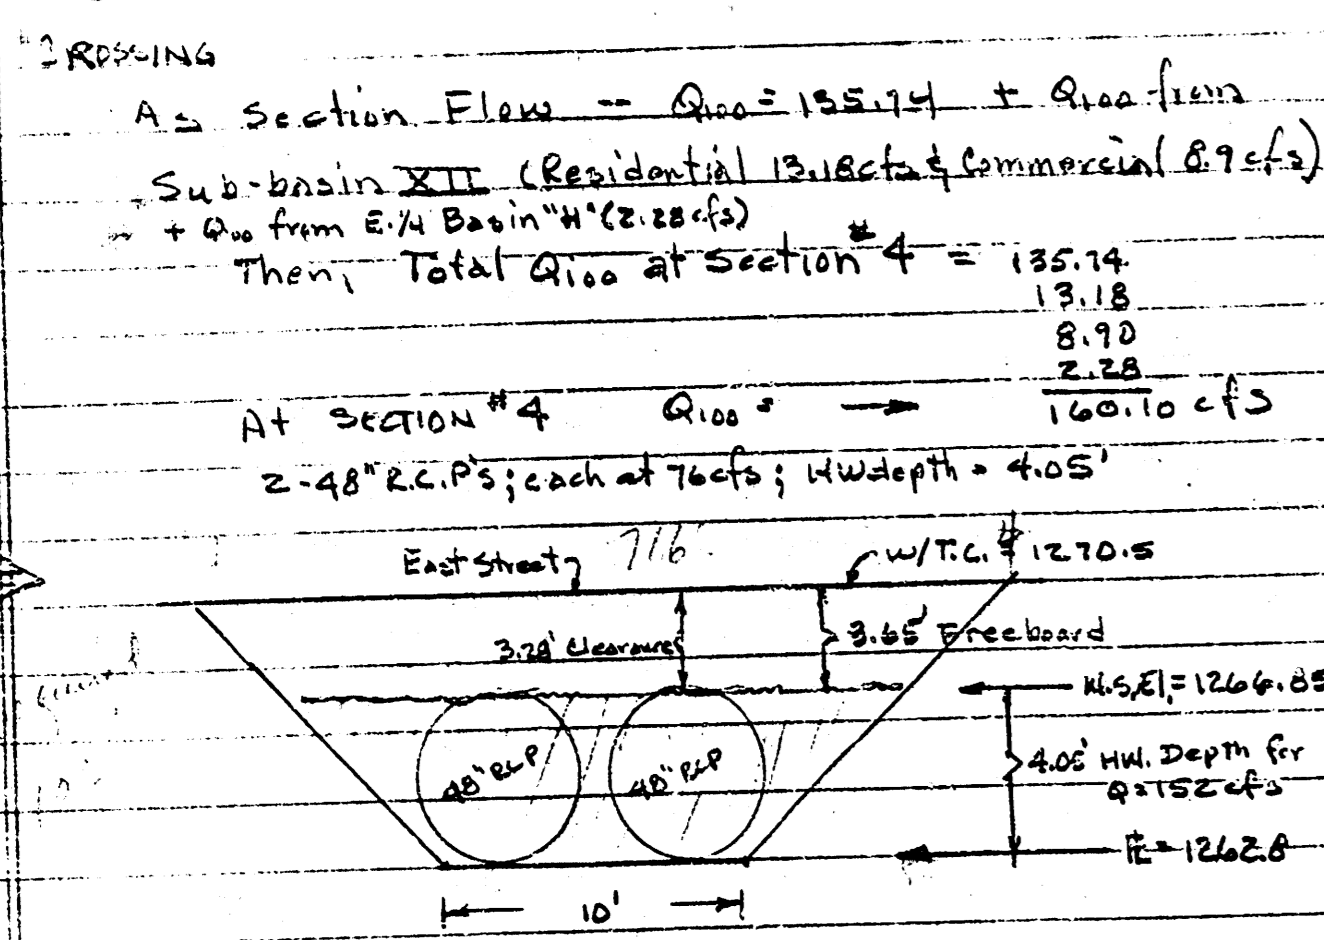 CROSSING
At Section Flow -- Q100 = 135.74 + Q100 from
Sub-basin XII (Residential 13.18cfs & Commercial 8.9 cfs)
+ Q100 from E.1/4 Basin "H" (2.28 cfs)
Then, Total Q100 at Section #4 = 135.74
13.18
8.90
2.28
At SECTION #4 Q100 = → 160.10 cfs
2-48" R.C.P's; each at 76cfs; HW depth = 4.05'
East Street 716 W/T.C. = 1270.5
3.28' Clearance 3.65' Freeboard
W.S.El. = 1266.85
48" RCP 48" RCP 4.05' HW. Depth for
Q=152 cfs
FL = 1262.8
10'